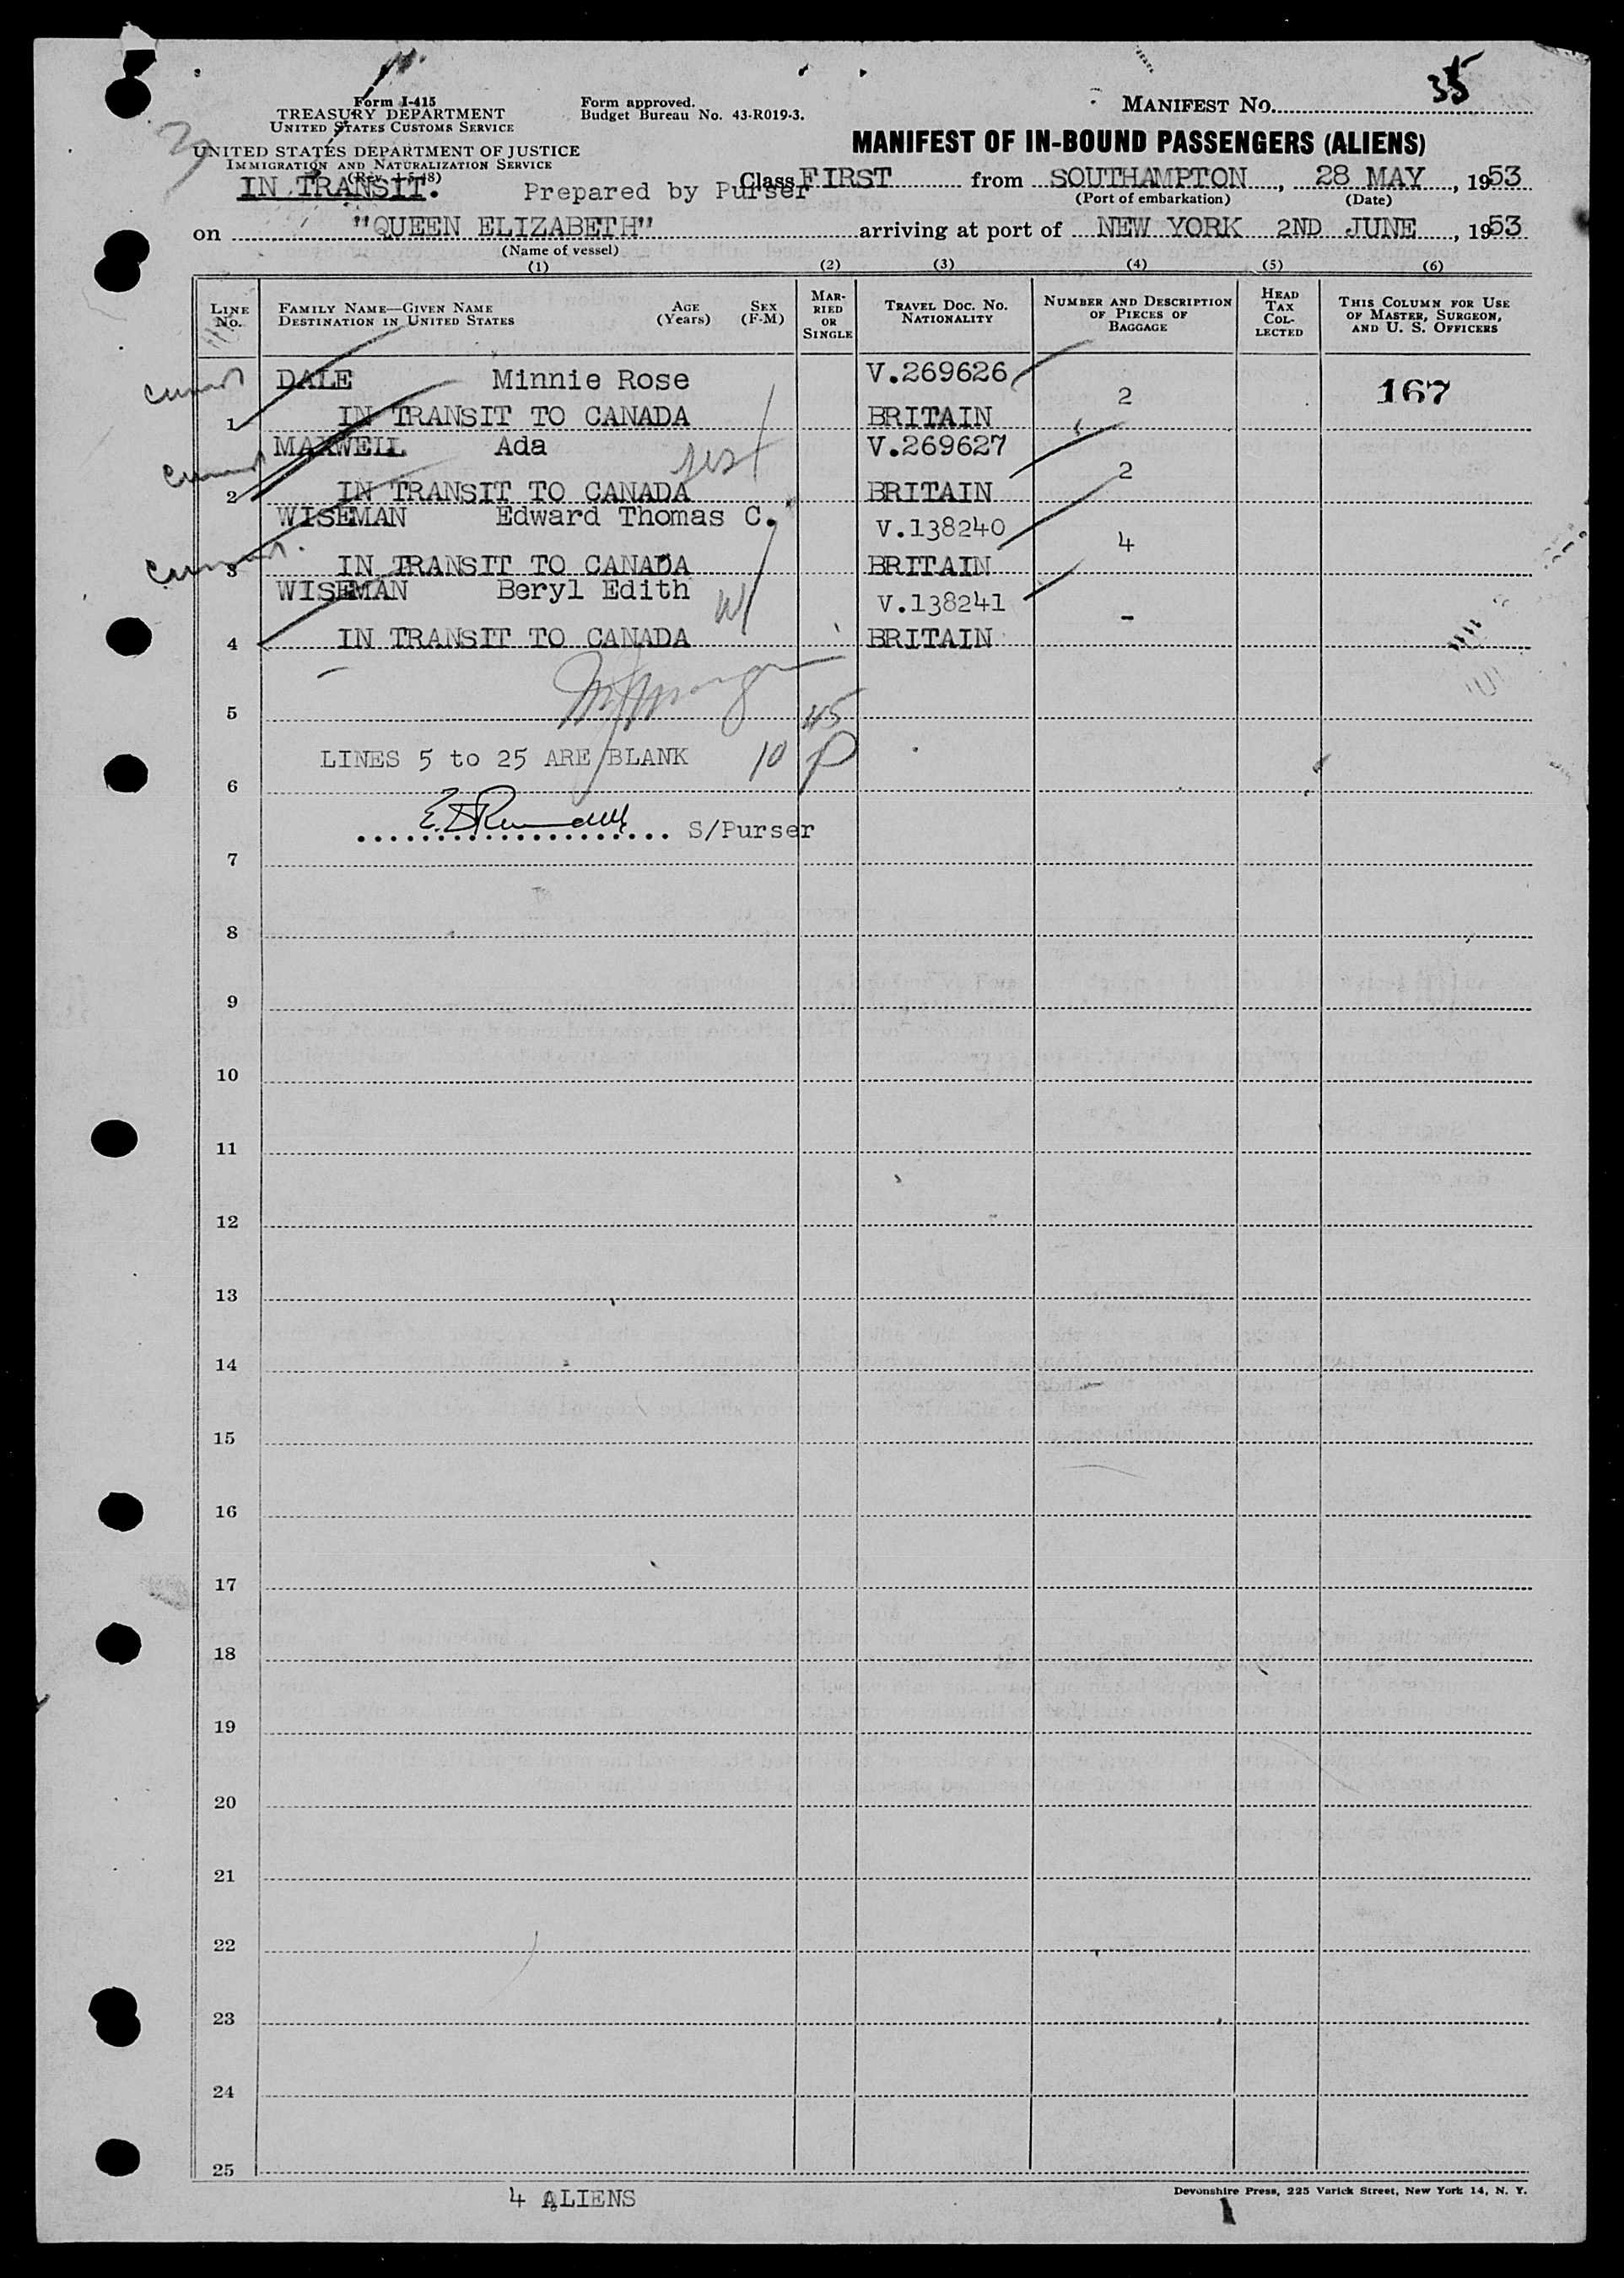 35
Form I-415
TREASURY DEPARTMENT
UNITED STATES CUSTOMS SERVICE
UNITED STATES DEPARTMENT OF JUSTICE
IMMIGRATION AND NATURALIZATION SERVICE
(Rev. 1-5-48)
Form approved.
Budget Bureau No. 43-R019-3.
MANIFEST NO.
MANIFEST OF IN-BOUND PASSENGERS (ALIENS)
IN TRANSIT. Prepared by Purser Class FIRST from SOUTHAMPTON, 28 MAY, 1953
(Port of embarkation) (Date)
on "QUEEN ELIZABETH" arriving at port of NEW YORK 2ND JUNE, 1953
(Name of vessel)
(1) (2) (3) (4) (5) (6)
LINE NO.
FAMILY NAME—GIVEN NAME
DESTINATION IN UNITED STATES
AGE (Years)
SEX (F-M)
MARRIED OR SINGLE
TRAVEL DOC. NO. NATIONALITY
NUMBER AND DESCRIPTION OF PIECES OF BAGGAGE
HEAD TAX COLLECTED
THIS COLUMN FOR USE OF MASTER, SURGEON, AND U. S. OFFICERS
DALE Minnie Rose V.269626 2 167
1 IN TRANSIT TO CANADA BRITAIN
MAXWELL Ada V.269627 2
2 IN TRANSIT TO CANADA BRITAIN
WISEMAN Edward Thomas C. V.138240 4
3 IN TRANSIT TO CANADA BRITAIN
WISEMAN Beryl Edith V.138241 -
4 IN TRANSIT TO CANADA BRITAIN
5
45
LINES 5 to 25 ARE BLANK 10
6
S/Purser
7
8
9
10
11
12
13
14
15
16
17
18
19
20
21
22
23
24
25
4 ALIENS
Devonshire Press, 225 Varick Street, New York 14, N. Y.